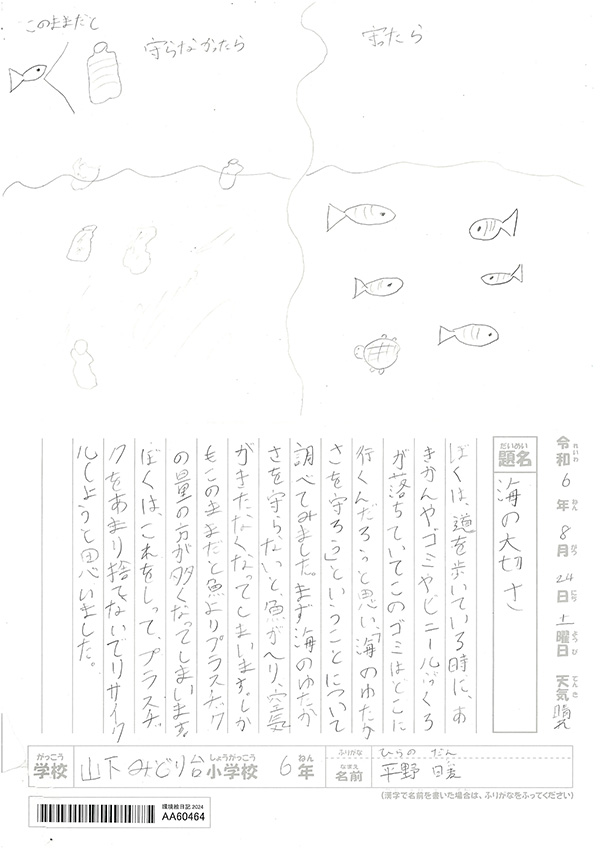 このままだと
守らなかったら
守ったら
令和6年8月24日土曜日 天気 晴れ
れいわ ねん がつ にち ようび てんき
だいめい
題名
海の大切さ
ぼくは、道を歩いている時に、あ
きかんやゴミやビニールぶくろ
が落ちていてこのゴミはどこに
行くんだろうと思い、「海のゆたか
さを守ろう」ということについて
調べてみました。まず海のゆたか
さを守らないと、魚がへり、空気
がきたなくなってしまいます。しか
もこのままだと魚よりプラスチック
の量の方が多くなってしまいます。
ぼくは、これをしって、プラスチッ
クをあまり捨てないでリサイク
ルしようと思いました。
がっこう
学校
山下みどり台小学校 6年
しょうがっこう ねん
ふりがな
ひらの だん
なまえ
名前
平野 暖
(漢字で名前を書いた場合は、ふりがなをふってください)
環境絵日記 2024
AA60464